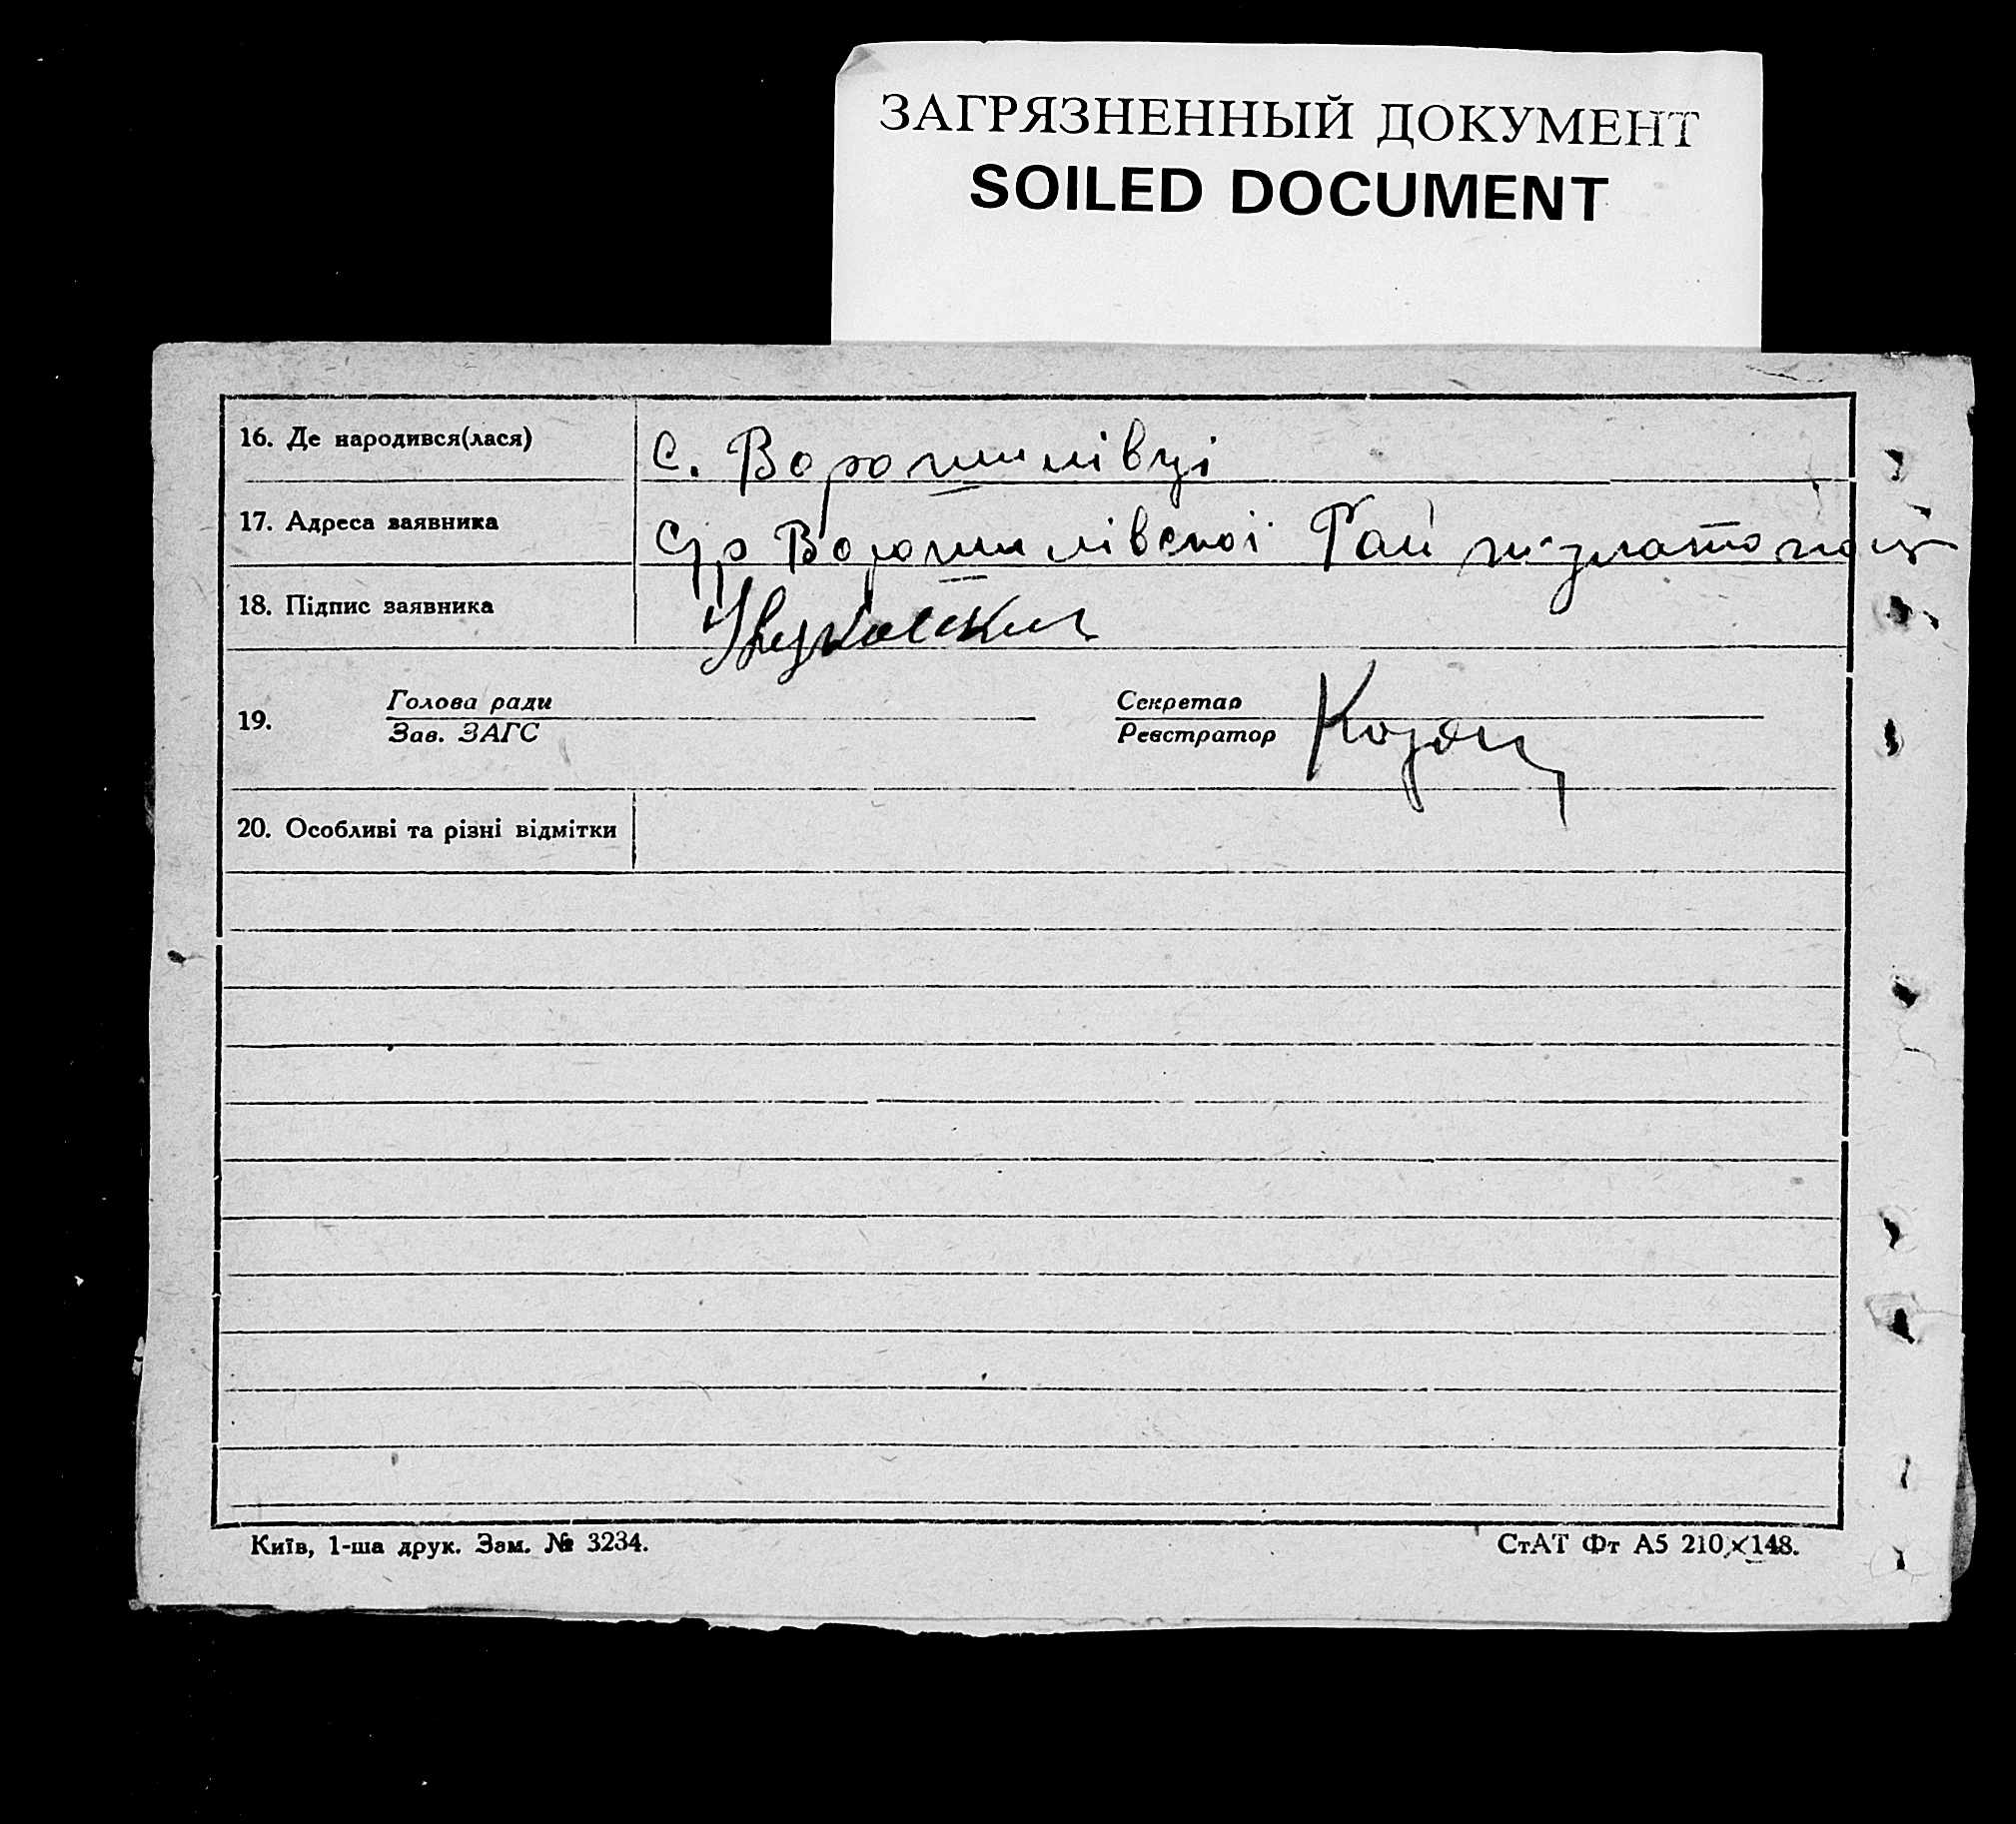 ЗАГРЯЗНЕННЫЙ ДОКУМЕНТ
SOILED DOCUMENT
16. Де народився(лася) с. Ворошилівці
17. Адреса заявника с/р Ворошилівскої Рай
18. Підпис заявника
19. Голова ради Секретар
Зав. ЗАГС Реєстратор
20. Особливі та різні відмітки
Київ, 1-ша друк. Зам. № 3234. СтАТ Фт А5 210×148.